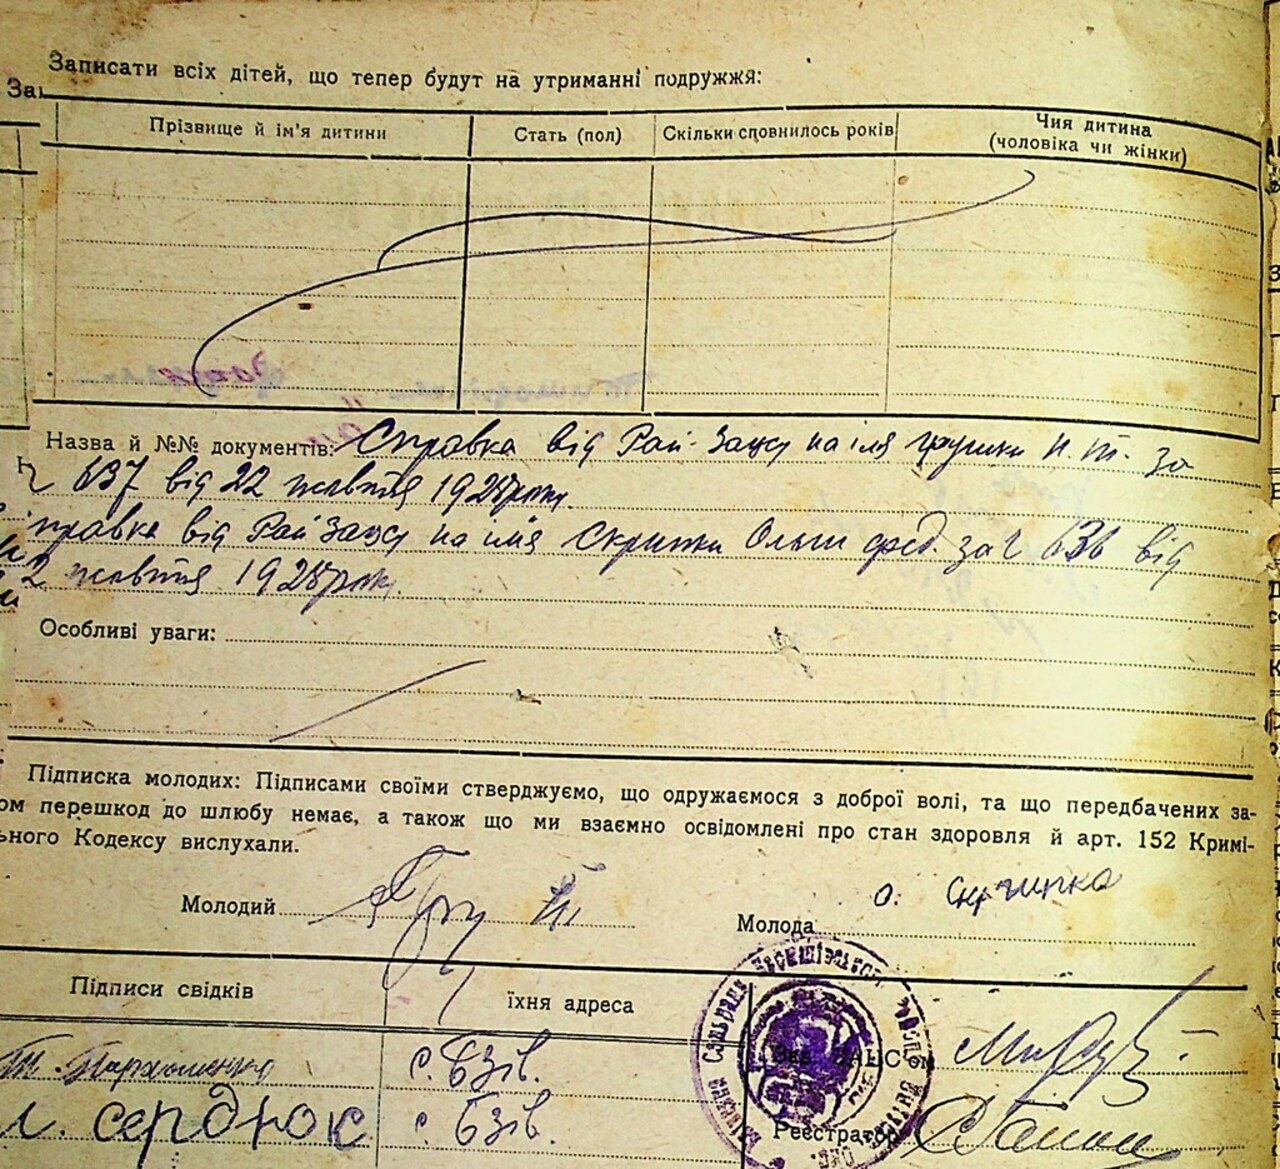 Записати всіх дітей, що тепер будут на утриманні подружжя:
Прізвище й ім'я дитини Стать (пол) Скільки сповнилось років Чия дитина
(чоловіка чи жінки)
Назва й №№ документів: Справка від Рай-Загсу на ім'я Н. Т. за
637 від 22 жовтня 1928 рок.
від Рай Загсу на ім'я Скрипки Ольги Фед. за 636 від
жовтня 1928 рок.
Особливі уваги:
Підписка молодих: Підписами своїми стверджуємо, що одружаємося з доброї волі, та що передбачених за-
ом перешкод до шлюбу немає, а також що ми взаємно освідомлені про стан здоровля й арт. 152 Кримі-
ьного Кодексу вислухали.
Молодий
Молода О. Скрипка
Підписи свідків їхня адреса
Т. Пархоменко с. Бзів.
сердюк с. Бзів.
Реєстратор